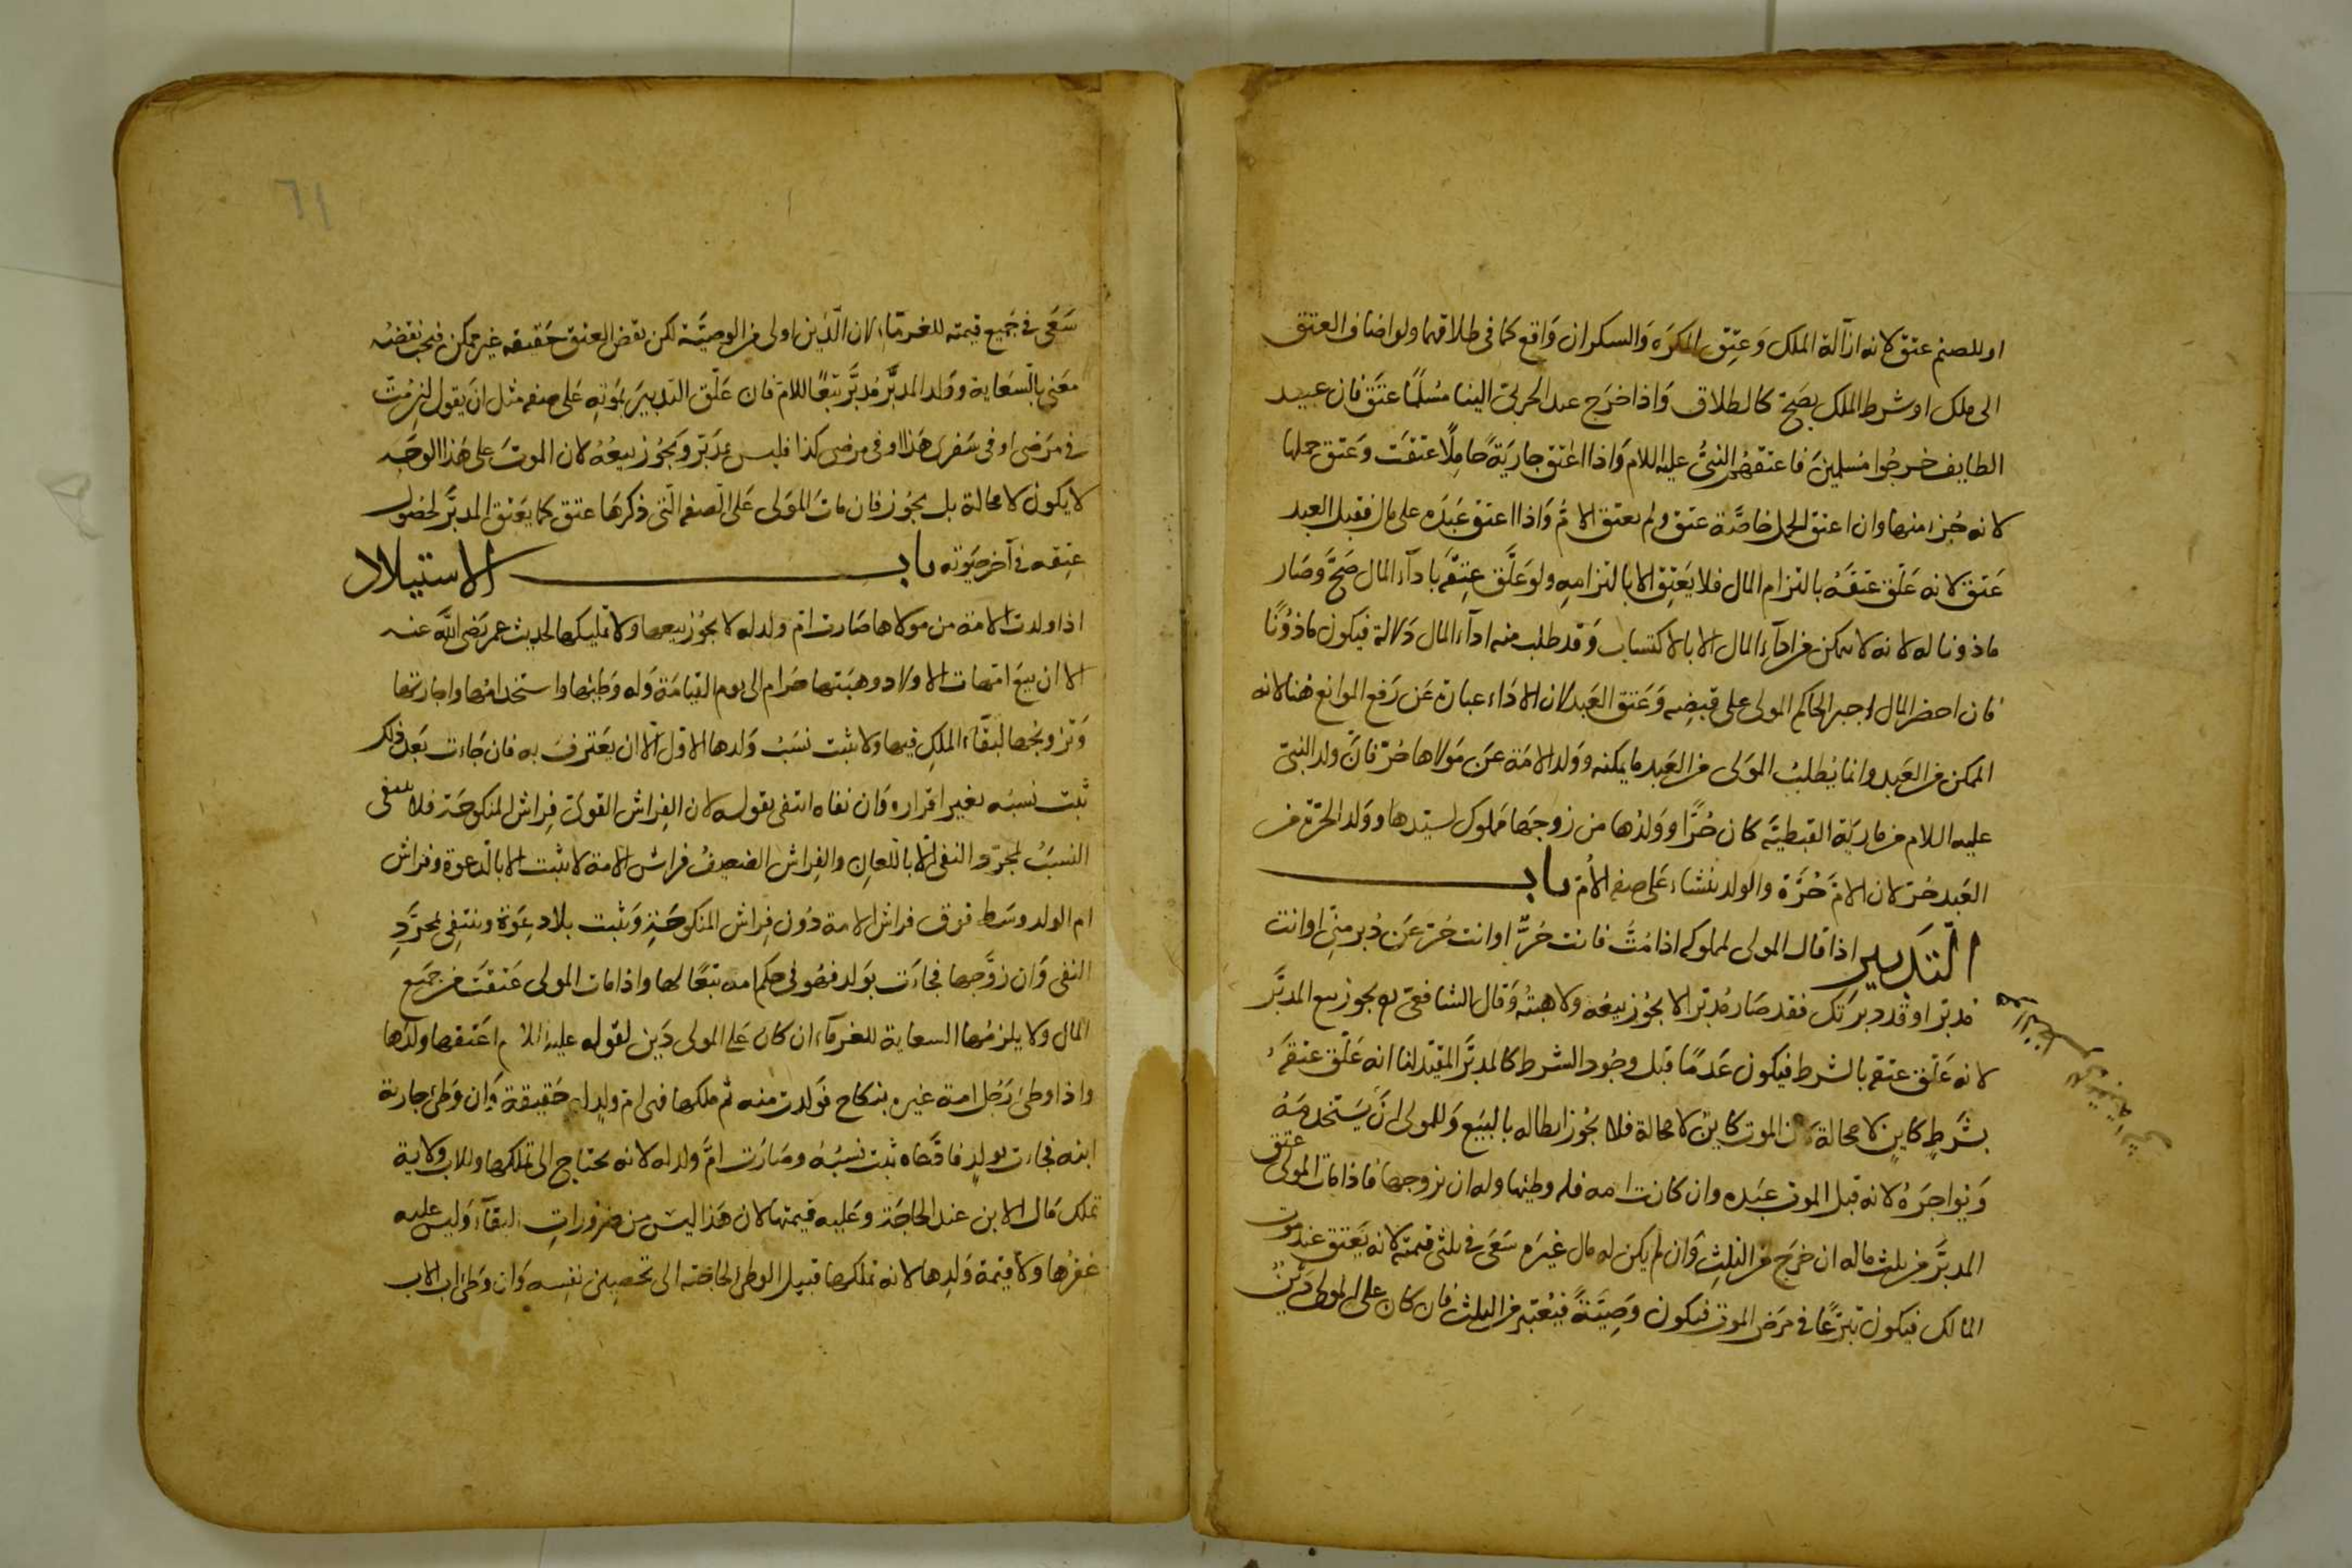 او للصنم عتق لانه ازالة الملك وَعِتق المكرَه وَالسكران وَاقع كما فى طلاقهما ولو اضاف العتق
الى ملك او شرط الملك يصَحّ كالطلاق وَاذا خرَج عبد الحربىّ الينا مُسْلمًا عتَق فان عبيد
الطايف خرجُوا مُسلمينَ فاعتقهُم النبىُّ عليه السلام وَاذا اعتق جاريَةً حَامِلًا عتقَت وَعَتق حملها
لانه جُزء منها وان اعتق الحمل خاصَّة عتق ولم يعتق الامُّ وَاذا اعتق عَبدَه على مال فقبل العبد
عَتق لانه عَلّق عتقَهُ بالتزام المال فلا يَعتِق الا بالتزامِهِ ولو عَلَّق عِتقَه بادآء المال صَحَّ وَصَار
ماذونا له لانه لا يمكن من ادآء المال الا بالاكتساب وَقد طلب منه ادآء المال دَلالة فيكون ماذُونًا
فان احضر المال اجبر الحاكم المولى على قبضِه وَعَتق العَبد لان الادَاء عبارة عَن رَفع الموانع هنا لانه
الممكن من العَبد وانما يُطلبُ المَولى من العَبد ما يمكنه ووَلد الامَة عَن مَولاها حُرّ فانَّ ولد النبىّ
عليه السلام من ماريَة القبطيَّه كان حُرًّا ووَلدُها من زوجهَا مَملوك لسيّدها ووَلد الحرّة من
العَبد حُرّ لان الامَّ حُرَّة والولد ينشاء عَلى صفه الأمّ بابـــ
التَّدبير اذا قال المولى لمملوكه اذا مُتُّ فانت حُرٌّ او انت حُرّ عَن دُبر مِنّى او انت
مدبّر او قد دبرَتك فقد صَار مُدبّرا لا يجُوز بيعُه ولا هبتُه وَقال الشافعى يجوز بيع المدبَّر
لانه عَلّق عِتقه بالشرط فيكون عَدَمًا قبل وجُود الشرط كالمدبَّر المقيّد لنا انه عَلّق عتقَهُ
بشَرطٍ كاينٍ لا محالة لان الموت كاين لا محالة فلا يجُوز ابطاله بالبَيَع وَللمولى انَ يَستخدمَهُ
وَيُواجرَهُ لانه قبل الموت عَبده وان كانت امه فله وطيُها وله ان يزوجها فاذا مات المولى عتق
المدبَّر من ثلث ماله ان خرَج من الثلثِ وَان لم يكن له مال غيرَه سَعَى فى ثلثى قيمته لانه يَعَتق عند موت
المالك فيكون تبرّعًا فى مرَض الموت فيكون وَصِيَّةً فيُعتبر من الثلث فان كان على المولى دَيْنٌ
٦١
سَعَى فى جَميع قيمته للغرمَاء لان الدَّين اولى من الوصيَّة لكن نقض العتق حَقيقه غير ممكن فيجب نقضُه
معَنى بالسّعَاية ووَلد المدبَّر مُدبَّر تبعًا للامّ فان عَلّق التدبيرَ بمَوتِه عَلى صفه مثل ان يقول ان مُتّ
فى مرَضى او فى سَفرى هَذا او فى مرضى كذا فليس بمدَبّر وَيجُوز بيعُهُ لان الموتَ على هَذا الوجَه
لا يكون لا محالة بل يجُوز فان ماتَ المَولى عَلى الصّفه الّتى ذكرهَا عتق كما يَعَتق المدبَّر لحصُول
عتِقه فى آخر حَيَوته بابـــ الاستيلاد
اذا ولدت الامَة من مولاها صَارت امّ ولد له لا يجُوز بيعها ولا تمليكها لحديث عمر رَضى اللّه عنه
الا ان بيعَ امّهات الاولاد وهبَتها حَرام الى يوم القيامَة وَله وَطئها واستخدامُها واجارتها
وَتزويجها لبقَاء الملكِ فيها ولا يثبت نسَبُ وَلدها الاوّل الّا ان يَعترفَ به فان جَاءت بَعَد ذلك
ثبت نسبَه بغير اقراره وَان نفاه انتفى بقوله لان الفِراش القوىّ فِراش المنكوحَة فلا ينتفى
النسَبُ لمجرّد النفى الّا باللّعانِ والفِراش الضعيفُ فراش الامة لا يثبت الا بالدّعوة وفراش
ام الولد وسَط فوق فراش الامة دُون فِراش المنكوحَةِ وَيثبت بلا دِعوَة وينتفى بمجرَّدِ
النفى وَان زوَّجها فجاءَت بوَلد فهُو فى حكم امه تبَعًا لها واذا مات المولى عَتقَت من جمَيع
المال ولا يلزمُها السعاية للغرمآء ان كان عَلى المولى دَين لقوله عليه السلام اعَتقها ولدُها
واذا وطئ رَجُل امة غيره بنكاح فوَلدت منه ثم ملكها فهى امّ ولدٍ له حَقيقة وَان وَطئ جارية
ابنه فجاءت بولدٍ فادَّعاه ثبت نسبُهُ وصَارَت امَّ ولد له لانه يحتاج الى تملكها وللاب ولاية
تملك مَال الابن عند الحاجَة وعَليه قيمتها لان هَذا ليسَ من ضرُوراتِ البقآء وَليس عليه
عقرُها ولا قيمة وَلدِها لانه تملكها قبيل الوطى لحاجَته الى تحصين نفسِه وَان وَطئ اب الاب